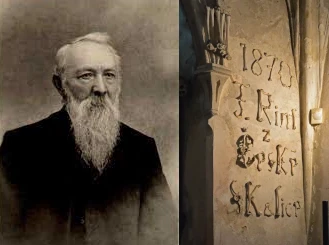 1870
F. Rint
z
České
Skalice